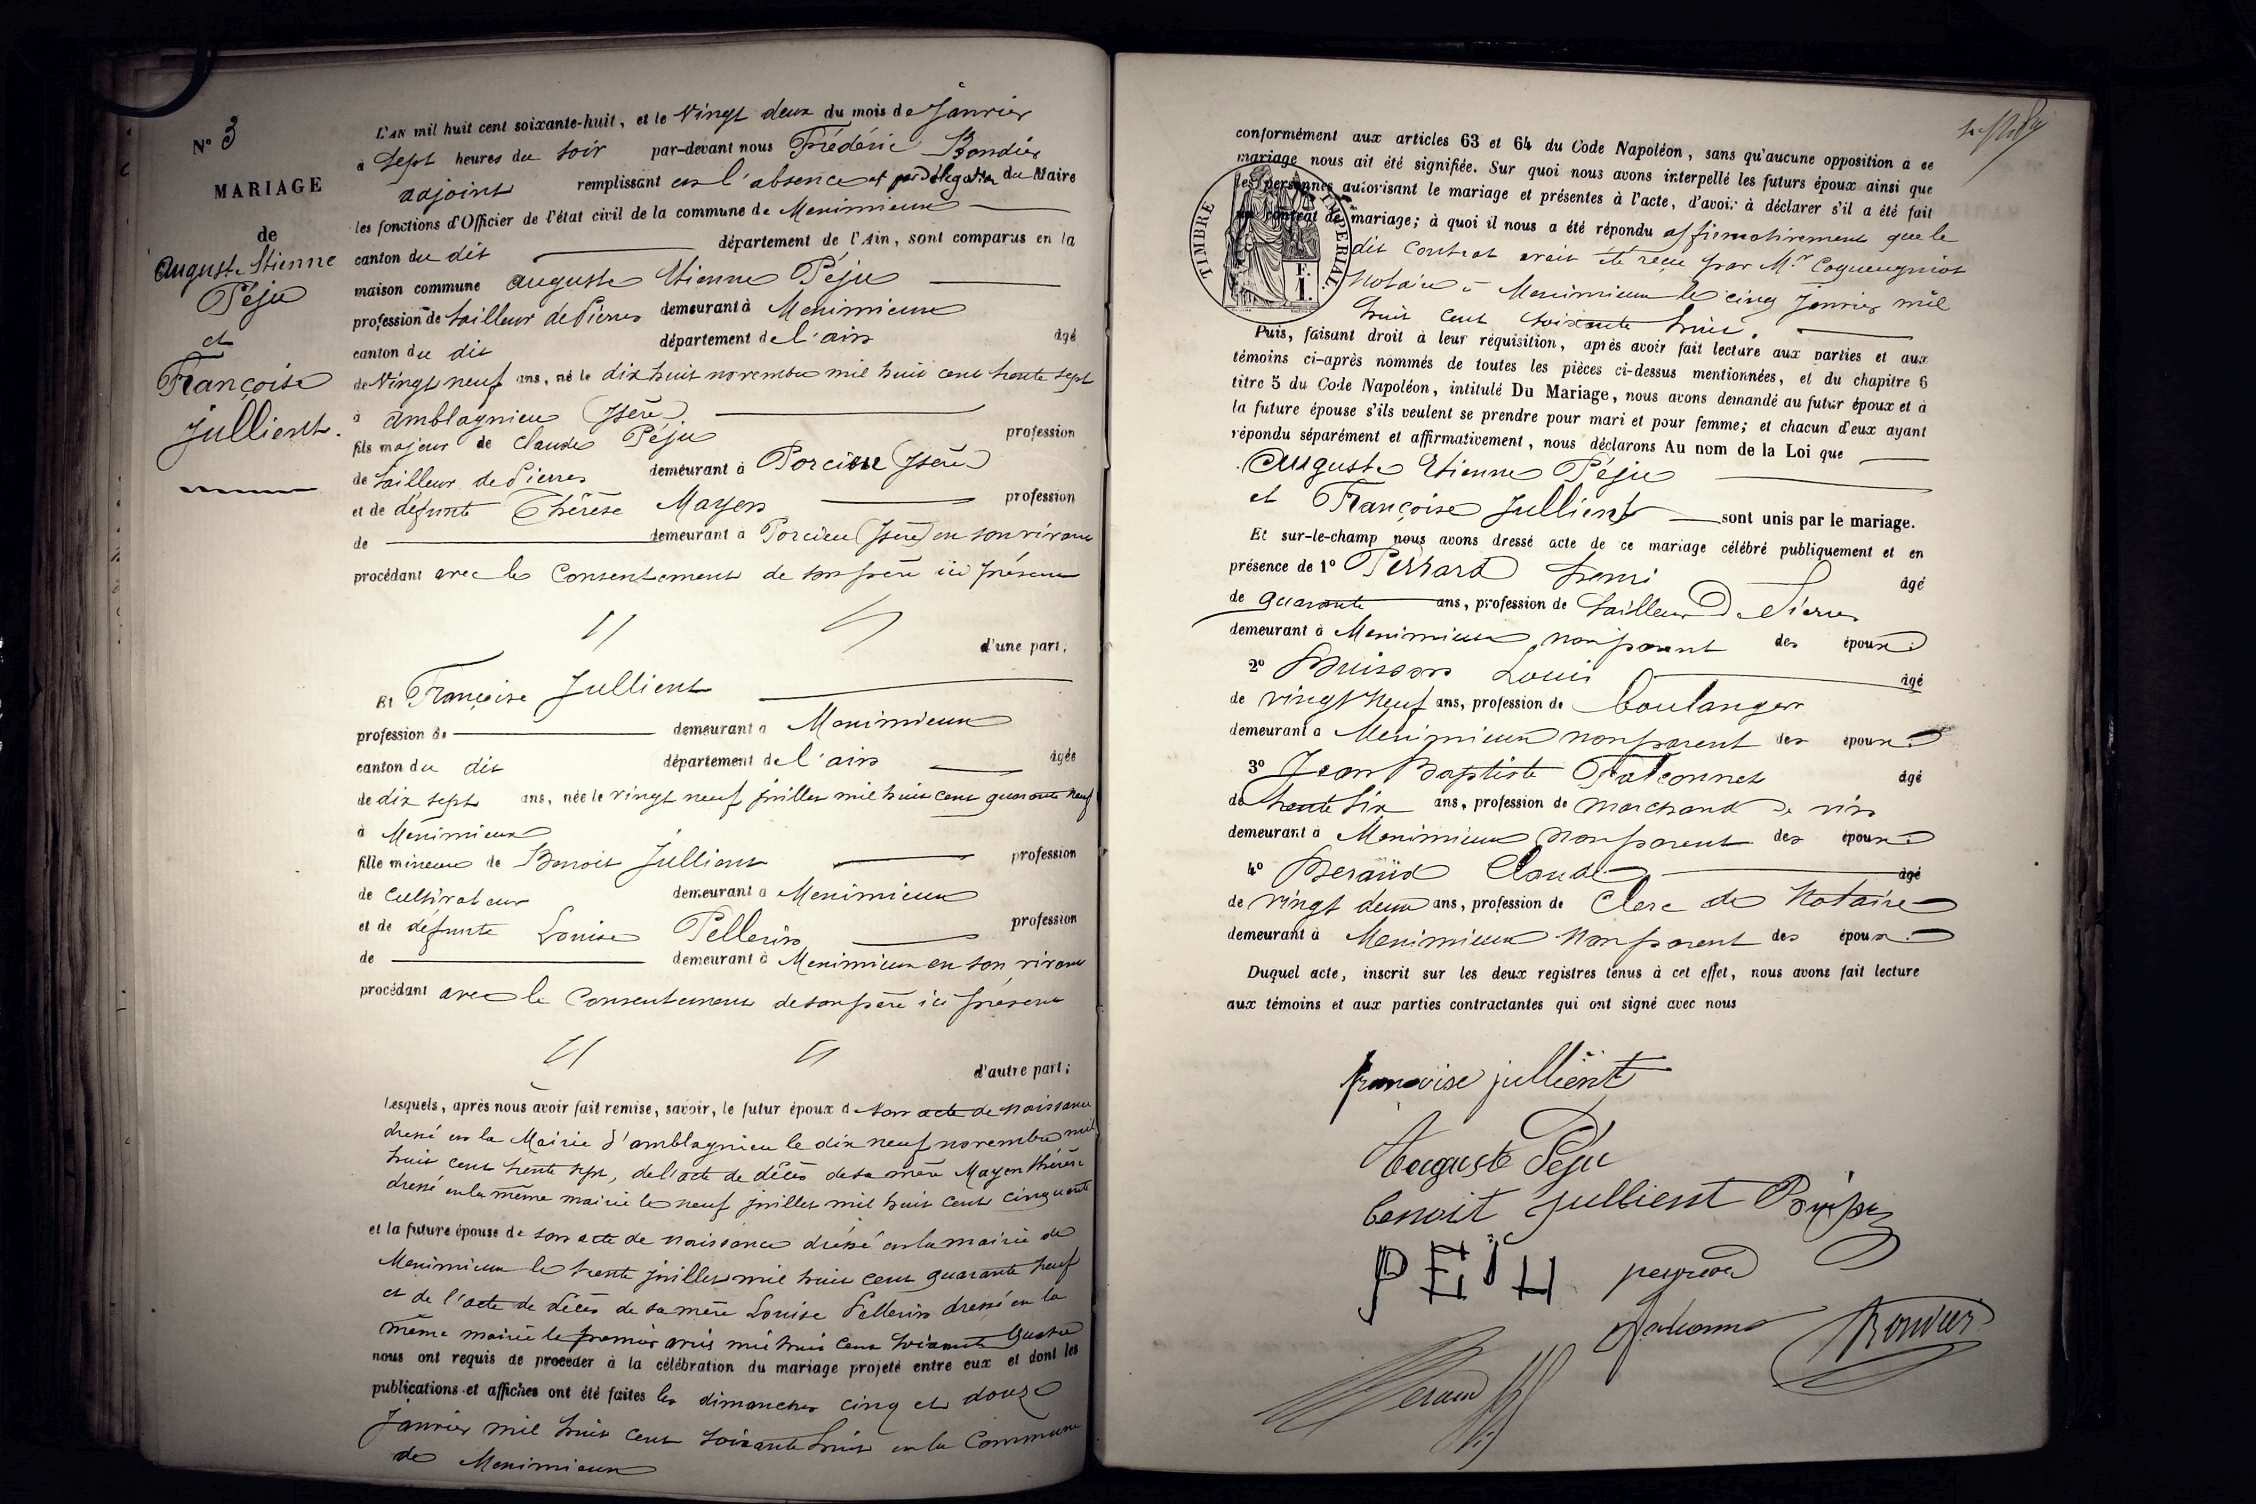 N° 3
MARIAGE
de
Auguste Etienne
Péju
et
Françoise
Jullient.
L'AN mil huit cent soixante-huit, et le Vingt deux du mois de Janvier
a Sept heures du soir par-devant nous Frédéric Bondier
adjoint remplissant en l'absence et par délégation du Maire
les fonctions d'Officier de l'état civil de la commune de Meximieux
canton du dit département de l'Ain, sont comparus en la
maison commune Auguste Etienne Péju
profession de tailleur de Pierres demeurant à Meximieux
canton du dit département de l'ain âgé
de Vingt neuf ans, né le dix huit novembre mil huit cent trente sept
à Amblagnieu (Isère)
fils majeur de Claude Péju profession
de tailleur de Pierres demeurant à Porcieu (Isère)
et de défunte Thérèse Mayen profession
de demeurant à Porcieu (Isère) en son vivant
procédant avec le Consentement de son père ici présent
d'une part;
Et Françoise Jullient
profession de demeurant a Meximieux
canton du dit département de l'ain âgée
de dix sept ans, née le vingt neuf juillet mil huit cent quarante neuf
à Meximieux
fille mineure de Benoit Jullient profession
de Cultivateur demeurant a Meximieux
et de défunte Louise Pellerin profession
de demeurant à Meximieux en son vivant
procédant avec le Consentement de son père ici présent
d'autre part;
Lesquels, après nous avoir fait remise, savoir, le futur époux de son acte de naissance
dressé en la Mairie d'amblagnieu le dix neuf novembre mil
huit cent trente sept, de l'acte de décès de sa mère Mayen thérèse
dressé en la même mairie le neuf juillet mil huit cent cinquante
et la future épouse de son acte de naissance dressé en la mairie de
Meximieux le trente juillet mil huit cent quarante neuf
et de l'acte de décès de sa mère Louise Pellerin dressé en la
même mairie le premier avril mil huit cent soixante quatre
nous ont requis de proceder à la célébration du mariage projeté entre eux et dont les
publications et affiches ont été faites les dimanches cinq et douze
Janvier mil huit cent soixante huit en la Commune
de Meximieux
conformément aux articles 63 et 64 du Code Napoléon, sans qu'aucune opposition à ce
mariage nous ait été signifiée. Sur quoi nous avons interpellé les futurs époux ainsi que
les personnes autorisant le mariage et présentes à l'acte, d'avoir à déclarer s'il a été fait
un contrat de mariage; à quoi il nous a été répondu affirmativement que le
dit Contrat avait été reçu par Mr Coqueugniot
Notaire à Meximieux le cinq Janvier mil
huit cent soixante huit.
TIMBRE IMPERIAL
F.
1.
Puis, faisant droit à leur réquisition, après avoir fait lecture aux parties et aux
témoins ci-après nommés de toutes les pièces ci-dessus mentionnées, et du chapitre 6
titre 5 du Code Napoléon, intitulé Du Mariage, nous avons demandé au futur époux et à
la future épouse s'ils veulent se prendre pour mari et pour femme; et chacun d'eux ayant
répondu séparément et affirmativement, nous déclarons Au nom de la Loi que
Auguste Etienne Péju
et Françoise Jullient sont unis par le mariage.
Et sur-le-champ nous avons dressé acte de ce mariage célébré publiquement et en
présence de 1° Perrard henri âgé
de quarante ans, profession de tailleur De Pierres
demeurant à Meximieux non parent des époux.
2° Buisson Louis âgé
de vingt neuf ans, profession de boulanger
demeurant a Meximieux non parent des époux.
3° Jean Baptiste Falconnet âgé
de trente six ans, profession de marchand de vin
demeurant à Meximieux non parent des époux.
4° Beraud Claude âgé
de vingt deux ans, profession de Clerc de Notaire
demeurant à Meximieux non parent des époux.
Duquel acte, inscrit sur les deux registres tenus à cet effet, nous avons fait lecture
aux témoins et aux parties contractantes qui ont signé avec nous
françoise jullient
Auguste Péju
benoit jullient
PEJU
Beraud
Bondier